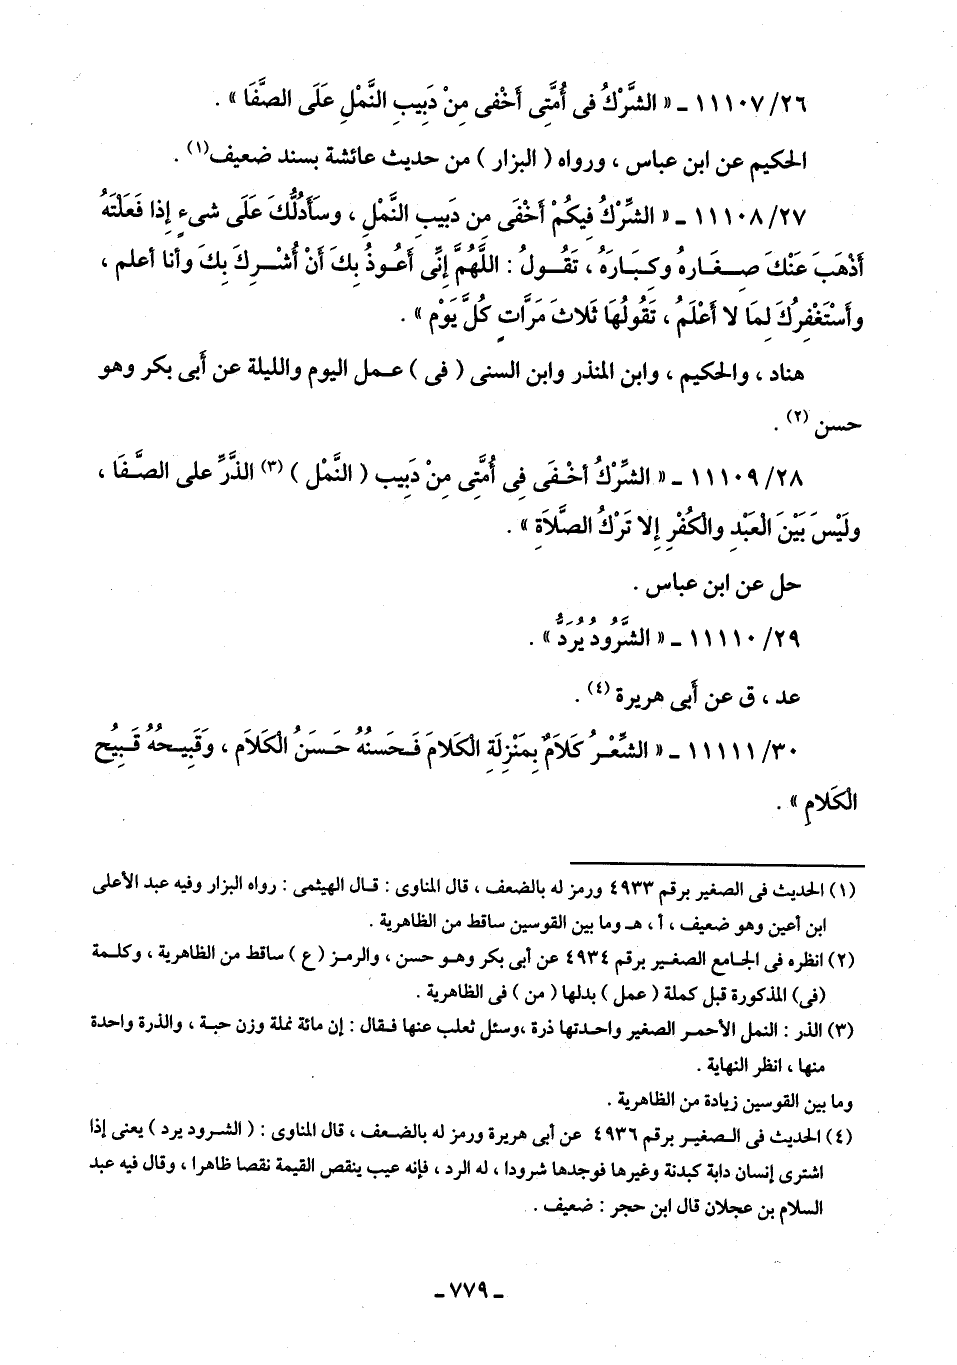 ١١١٠٧/٢٦ ـ « الشَّرْكُ فى أُمَّتِى أَخْفى مِنْ دَبِيبِ النَّمْلِ عَلَى الصَّفَا » .
الحكيم عن ابن عباس ، ورواه ( البزار ) من حديث عائشة بسند ضعيف(١) .
١١١٠٨/٢٧ ـ « الشِّرْكُ فِيكُمْ أَخْفَى مِن دَبِيبِ النَّمْلِ ، وسَأَدُلُّكَ عَلَى شىءٍ إِذا فَعَلْتَهُ
أَذْهَبَ عَنْكَ صِغَارَهُ وكِبَارَهُ ، تَقُولُ : اللَّهُمَّ إِنِّى أَعُوذُ بِكَ أَنْ أُشْرِكَ بِكَ وأنا أعلم ،
وأَسْتَغْفِرُكَ لِمَا لا أَعْلَمُ ، تَقُولُهَا ثَلاثَ مَرَّاتٍ كُلَّ يَوْم » .
هناد ، والحكيم ، وابن المنذر وابن السنى ( فى ) عمل اليوم والليلة عن أَبى بكر وهو
حسن (٢) .
١١١٠٩/٢٨ ـ « الشِّرْكُ أخْفَى فِى أُمَّتِى مِنْ دَبِيبِ ( النَّمْل ) (٣) الذَّرِّ على الصَّفَا ،
ولَيْسَ بَيْنَ الْعَبْدِ والْكُفْرِ إِلا تَرْكُ الصَّلاَةِ » .
حل عن ابن عباس .
١١١١٠/٢٩ ـ « الشَّرُودُ يُرَدُّ » .
عد ، ق عن أَبى هريرة (٤) .
١١١١١/٣٠ ـ « الشِّعْرُ كَلاَمٌ بِمَنْزِلَةِ الْكَلاَمَ فَحَسَنُهُ حَسَنُ الْكَلاَمِ ، وَقَبِيحُهُ قَبِيُح
الْكَلامِ » .
(١) الحديث فى الصغير برقم ٤٩٣٣ ورمز له بالضعف ، قال المناوى : قال الهيثمى : رواه البزار وفيه عبد الأعلى
ابن أعين وهو ضعيف ، أ ، هـ وما بين القوسين ساقط من الظاهرية .
(٢) انظره فى الجامع الصغير برقم ٤٩٣٤ عن أبى بكر وهو حسن ، والرمز ( ع ) ساقط من الظاهرية ، وكلمة
(فى) المذكورة قبل كملة ( عمل ) بدلها ( من ) فى الظاهرية .
(٣) الذر : النمل الأحمر الصغير واحدتها ذرة ،وسئل ثعلب عنها فقال : إن مائة نملة وزن حبة ، والذرة واحدة
منها ، انظر النهاية .
وما بين القوسين زيادة من الظاهرية .
(٤) الحديث فى الصغير برقم ٤٩٣٦ عن أبى هريرة ورمز له بالضعف ، قال المناوى : ( الشرود يرد ) يعنى إذا
اشترى إنسان دابة كبدنة وغيرها فوجدها شرودا ، له الرد ، فإنه عيب ينقص القيمة نقصا ظاهرا ، وقال فيه عبد
السلام بن عجلان قال ابن حجر : ضعيف .
ـ ٧٧٩ ـ